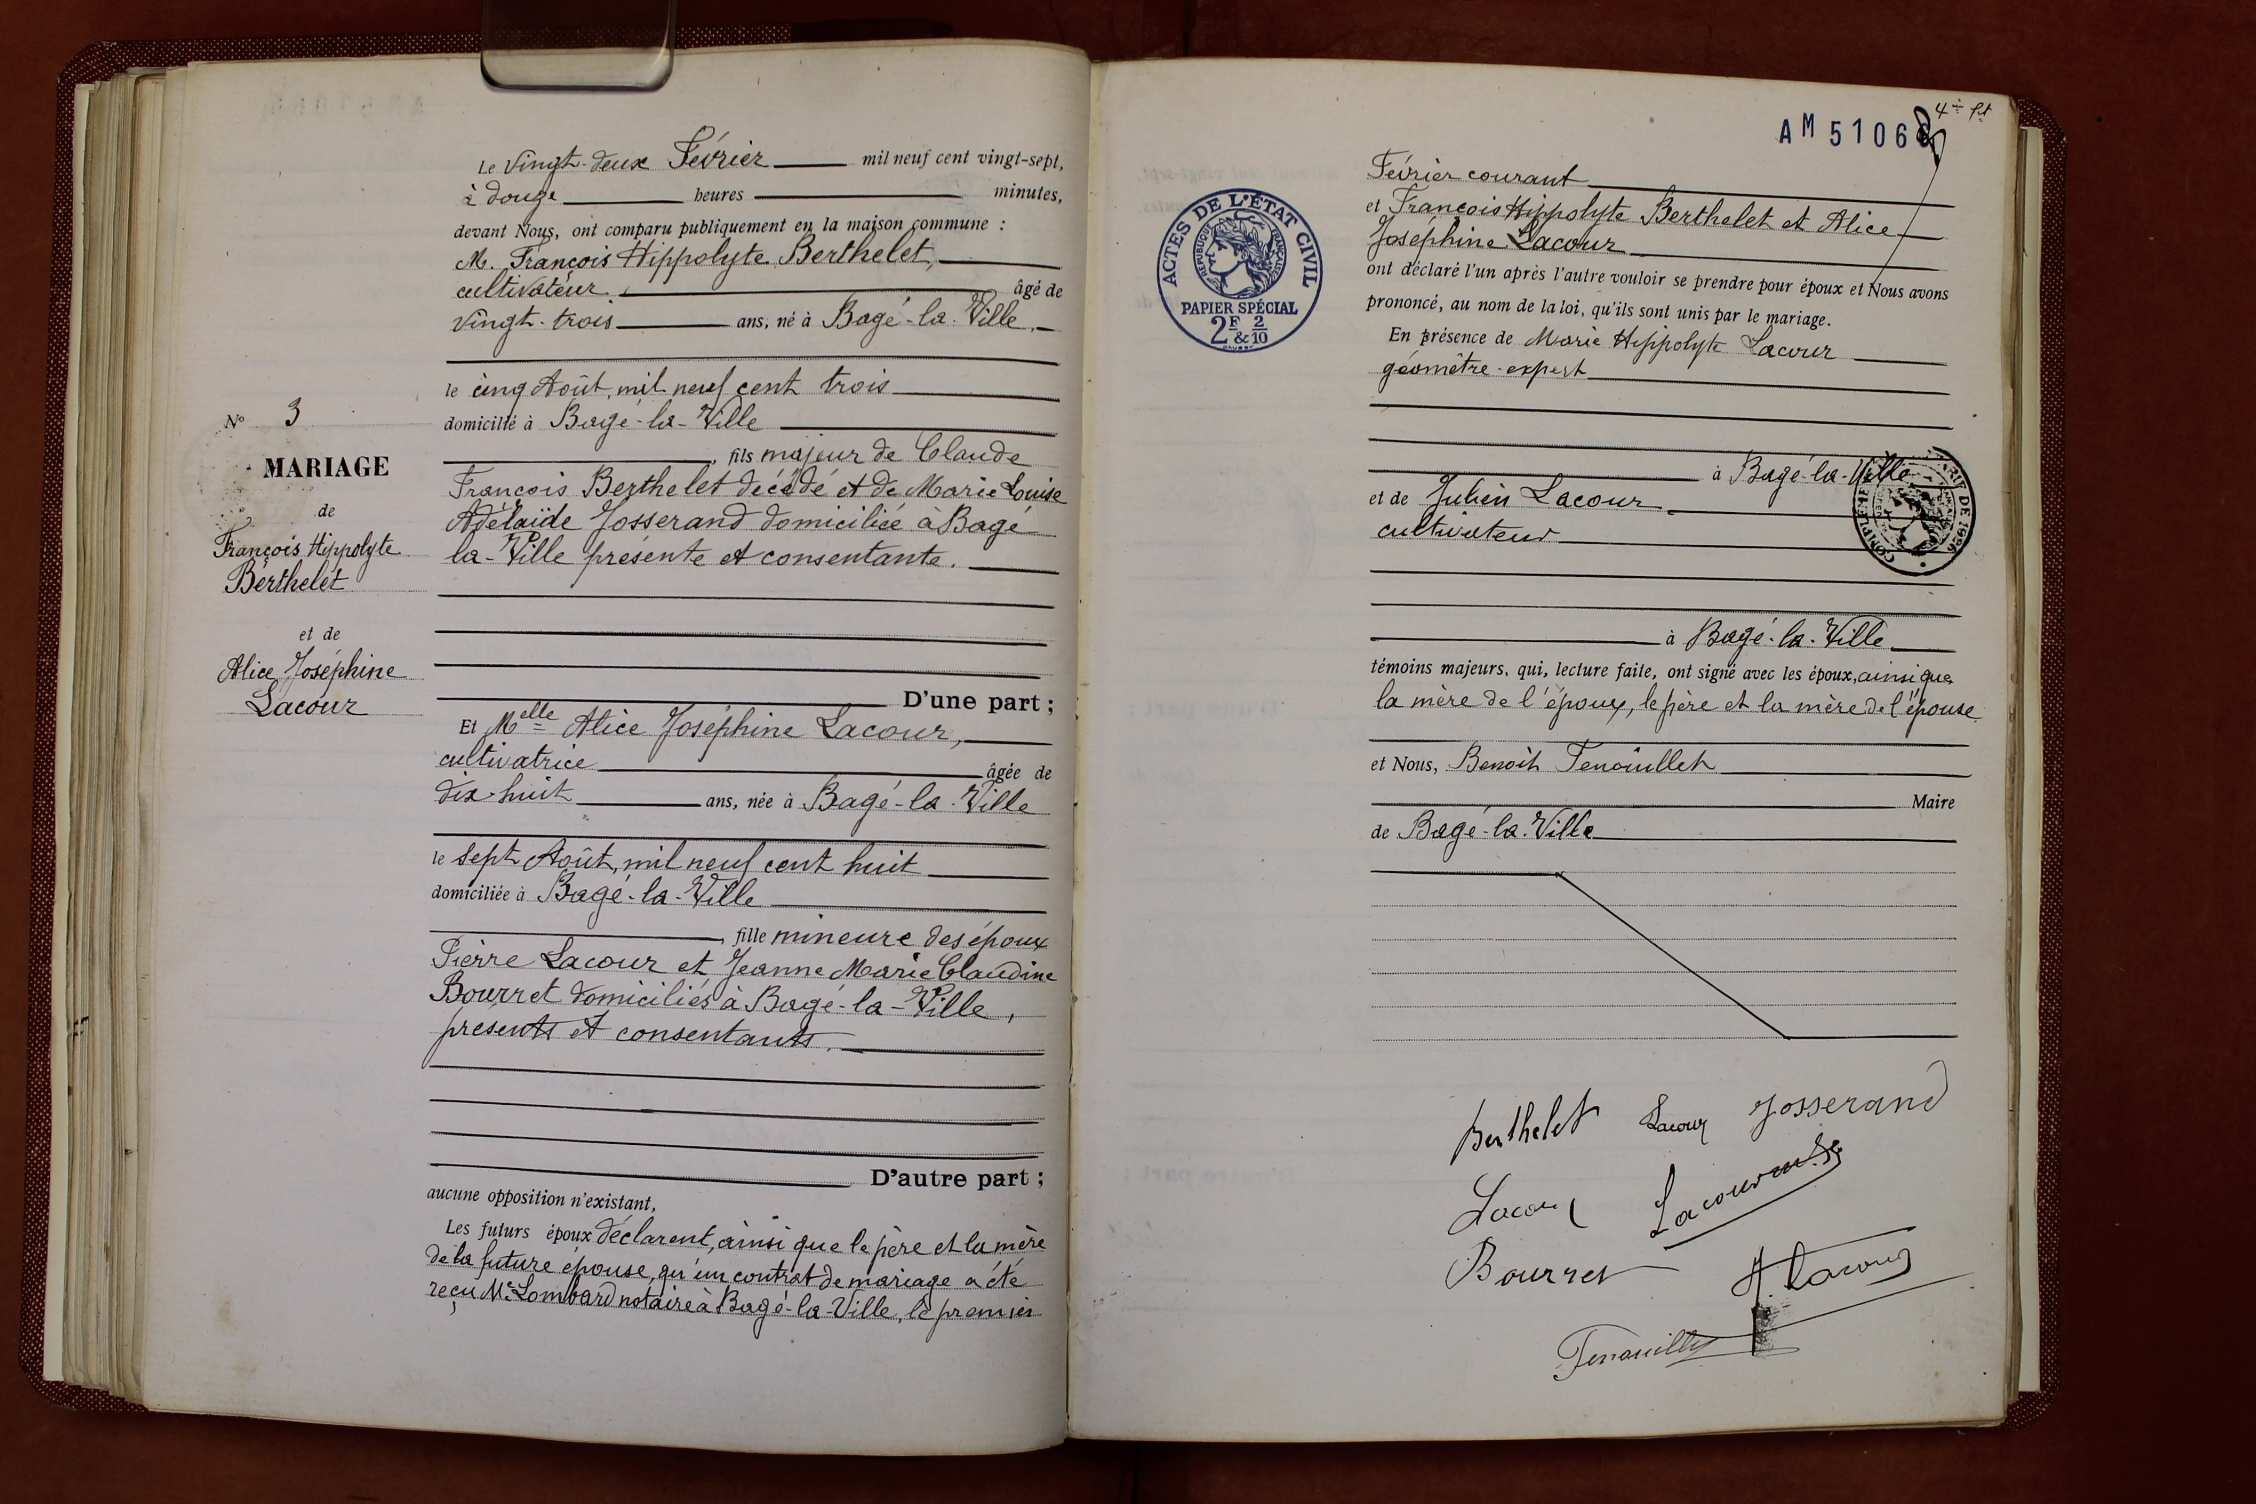 Le vingt-deux Février mil neuf cent vingt-sept,
à douze heures minutes,
devant Nous, ont comparu publiquement en la maison commune :
M. François Hippolyte Berthelet,
cultivateur âgé de
vingt-trois ans, né à Bagé-la-Ville,
le cinq Août, mil neuf cent trois
domicilié à Bagé-la-Ville
, fils majeur de Claude
François Berthelet décédé et de Marie Louise
Adélaïde Josserand domiciliée à Bagé
la-Ville présente et consentante.
D'une part ;
Et Melle Alice Joséphine Lacour,
cultivatrice âgée de
dix-huit ans, née à Bagé-la-Ville
le sept Août, mil neuf cent huit
domiciliée à Bagé-la-Ville
, fille mineure des époux
Pierre Lacour et Jeanne Marie Claudine
Bourret domiciliés à Bagé-la-Ville,
présents et consentants.
D'autre part ;
aucune opposition n'existant,
Les futurs époux déclarent, ainsi que le père et la mère
de la future épouse, qu'un contrat de mariage a été
reçu Me Lombard notaire à Bagé-la-Ville, le premier
No 3
MARIAGE
de
François Hippolyte
Berthelet
et de
Alice Joséphine
Lacour
4e ft
AM 5106
ACTES DE L'ÉTAT CIVIL
RÉPUBLIQUE FRANÇAISE
PAPIER SPÉCIAL
2F & 2/10
Février courant
et François Hippolyte Berthelet et Alice
Joséphine Lacour
ont déclaré l'un après l'autre vouloir se prendre pour époux et Nous avons
prononcé, au nom de la loi, qu'ils sont unis par le mariage.
En présence de Marie Hippolyte Lacour
géomètre-expert
à Bagé-la-Ville
et de Julien Lacour
cultivateur
à Bagé-la-Ville
témoins majeurs, qui, lecture faite, ont signé avec les époux, ainsi que
la mère de l'époux, le père et la mère de l'épouse
et Nous, Benoît Fenouillet
Maire
de Bagé-la-Ville
Berthelet Lacour Josserand
Lacour
Bourret
H. Lacour
Fenouillet